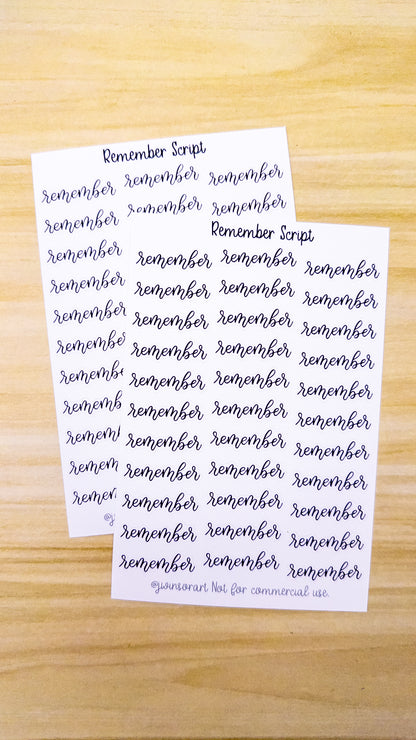 Remember Script
remember remember remember
remember remember remember
remember
remember
remember
remember
remembe
rememb
remem
remem
remem
@j
Remember Script
remember remember remember
remember remember remember
remember remember remember
remember remember remember
remember remember remember
remember remember remember
remember remember remember
remember remember remember
remember remember remember
remember remember remember
remember remember remember
@jwinsorart Not for commercial use.